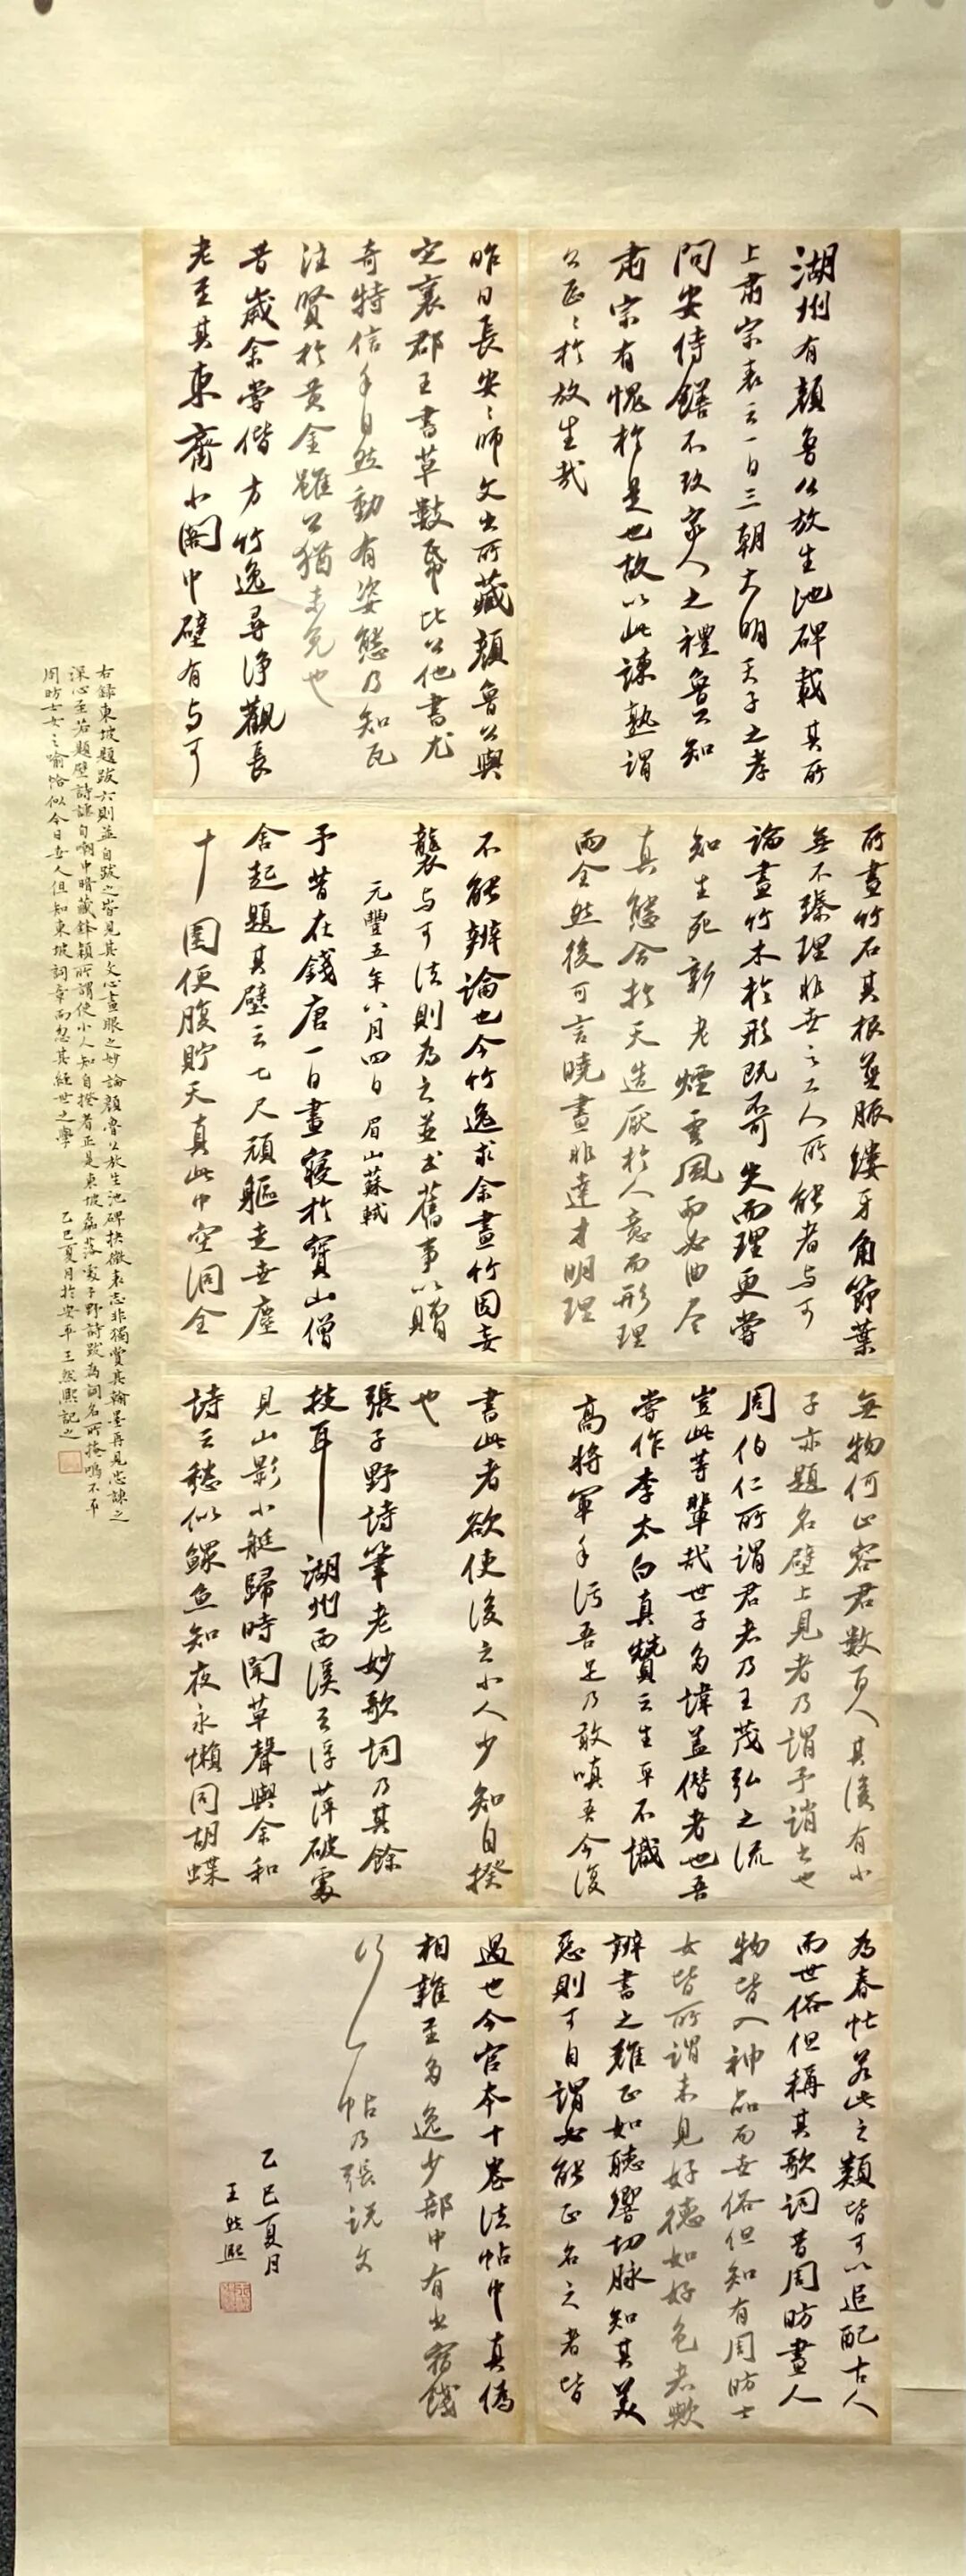 湖州有顏魯公放生池碑載其所
上肅宗表云一日三朝大明天子之孝
問安侍饍不改家人之禮魯公知
肅宗有愧於是也故以此諫孰謂
公區〻於放生哉
昨日長安〻師文出所藏顏魯公與
定襄郡王書草數㡀比公他書尤
奇特信手自然動有姿態乃知瓦
注賢於黄金雖公猶未免也
昔歲余嘗偕方竹逸尋淨觀長
老至其東齋小閣中壁有与可
所畫竹石其根莖脈縷牙角節葉
無不臻理非世之工人所能者与可
論畫竹木於形既不可失而理更當
知生死新老煙雲風雨必曲尽
真態合於天造厭於人意而形理
兩全然後可言曉畫非達才明理
不能辨論也今竹逸求余畫竹因妄
襲与可法則為之並書舊事以贈
元豐五年八月四日 眉山蘇軾
予昔在錢唐一日晝寢於寶山僧
舍起題其壁云七尺頑軀走世塵
十圍便腹貯天真此中空洞全
無物何止容君數百人其後有小
子亦題名壁上見者乃謂予誚之也
周伯仁所謂君者乃王茂弘之流
豈此等輩哉世子多諱蓋僭者也吾
嘗作李太白真贊云生平不識
高將軍手污吾足乃敢嗔吾今復
書此者欲使後之小人少知自揆
也
張子野詩筆老妙歌詞乃其餘
技耳 湖州西溪云浮萍破處
見山影小艇歸時聞草聲與余和
詩云愁似鰥魚知夜永懶同胡蝶
為春忙若此之類皆可以追配古人
而世俗但稱其歌詞昔周昉畫人
物皆入神品而世俗但知有周昉士
女皆所謂未見好德如好色者歟
辨書之難正如聽響切脉知其美
惡則可自謂必能正名之者皆
過也今官本十卷法帖中真偽
相雜至多逸少部中有出宿餞
行一帖乃張説文
乙巳夏月
王然熙
右録東坡題跋六則並自跋之皆見其文心畫眼之妙論顏魯公放生池碑抉微表志非獨賞其翰墨再見忠諫之
深心至若題壁詩謔自嘲中暗藏鋒穎所謂使小人知自揆者正是東坡磊落處子野詩跋為詞名所掩鳴不平
周昉士女之喻恰似今日世人但知東坡詞章而忽其經世之學 乙巳夏月於安平 王然熙記之